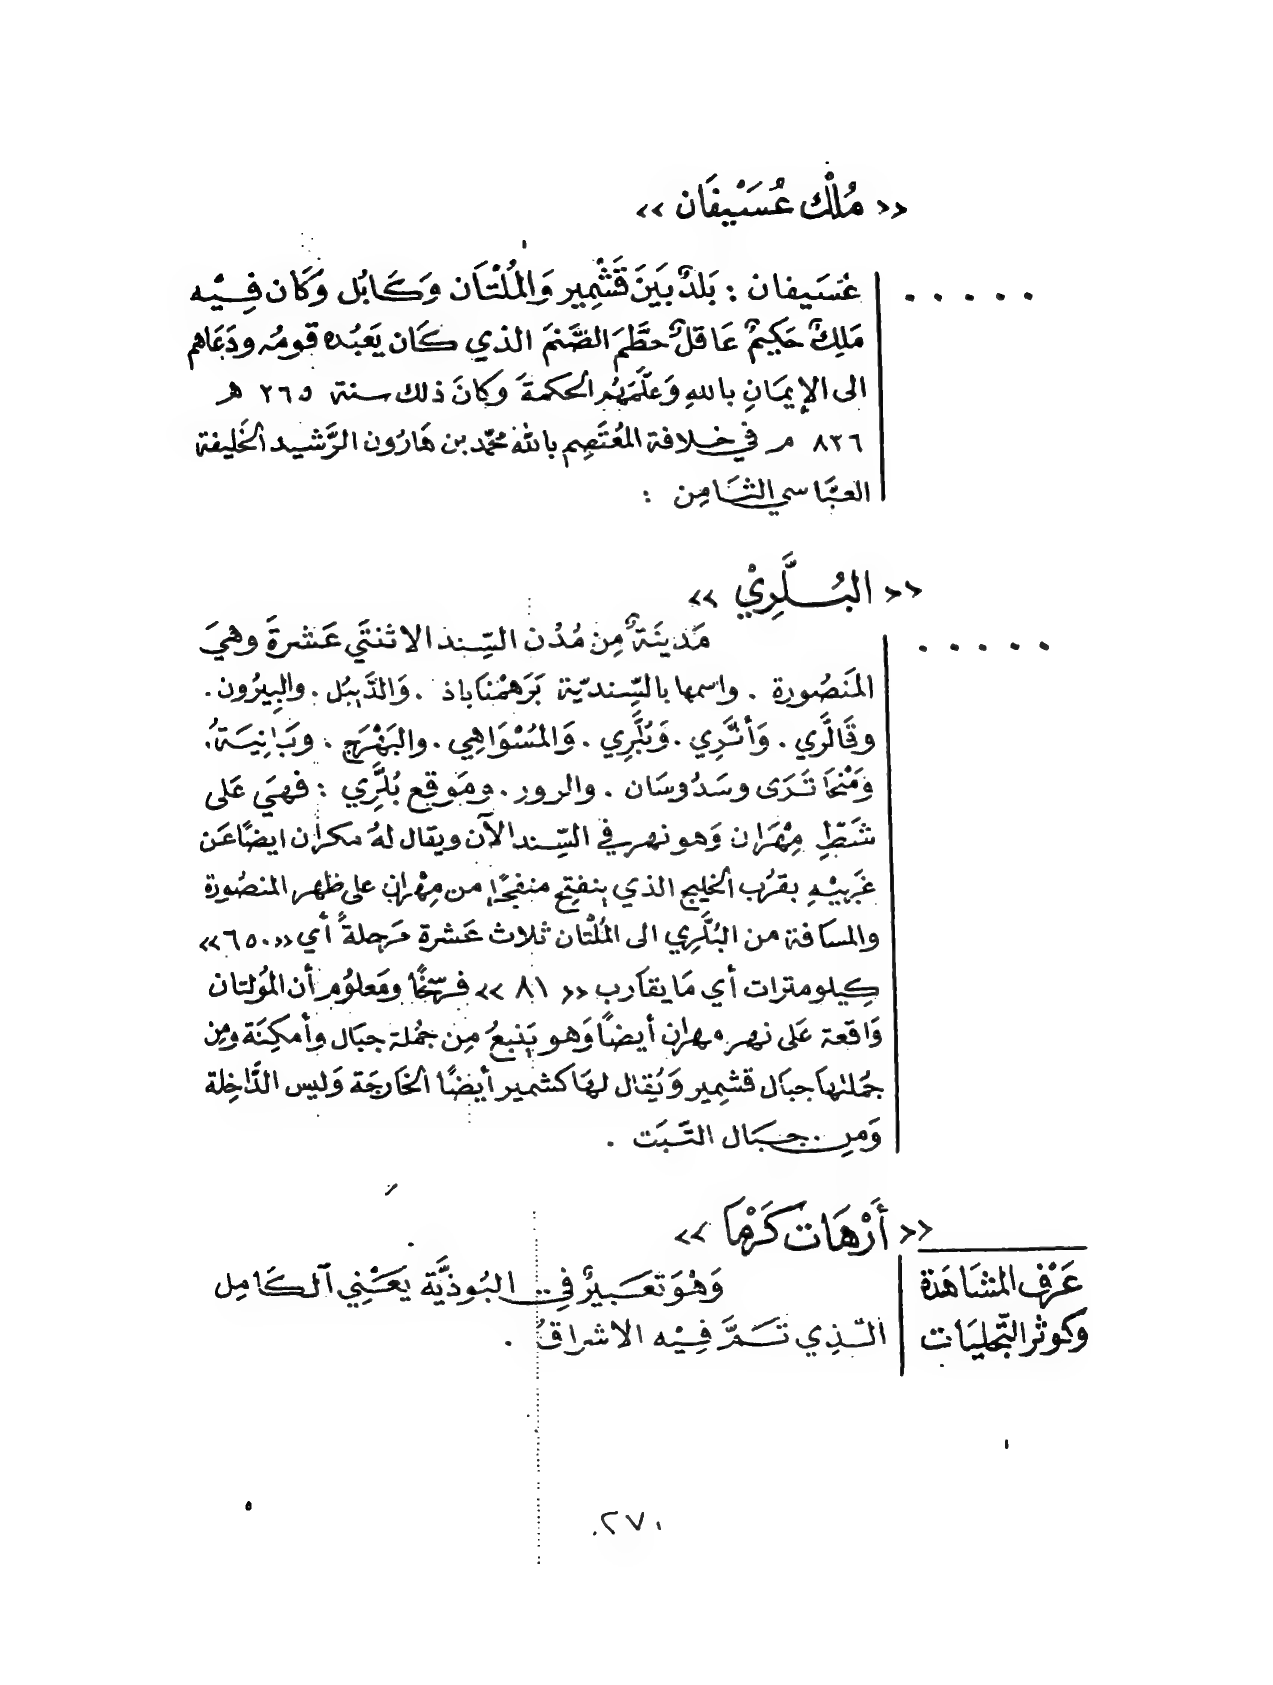 «مُلْك عُسَيْفَان»
. . . . . عُسَيفان : بَلدٌ بَينَ قَشْمِير وَالمُلْتَان وَكَابُل وَكَان فِيْه
مَلِكٌ حَكِيمٌ عَاقلٌ حطَّمَ الصَّنمَ الذي كَان يَعبُده قومُه ودَعَاهم
الى الإيمَانِ باللهِ وَعلَّمَهُم الحكمةَ وكانَ ذلك سنة ٢٦٥ هـ
٨٢٦ م في خلافة المعُتَصِم بالله محمّد بن هَارُون الرَّشيد الخَليفة
العبَّاسي الثَّامِن :
«البُلَّرِيْ»
. . . . . مَدينَةٌ مِن مُدُن السِّند الاثنتَي عَشرةَ وهيَ
المَنصُورة . واسمها بالسِّنديّة بَرَهمْنَاباذ . وَالدَّيبُل . والبِيرُون .
وقَالَّري . وَأنَّري . وَبُلَّرِي . وَالمُسْوَاهِي . والبَهْرَج . وبَانِيَةُ،
وَمَنْحَاتَرَى وسَدُوسَان . والرور . ومَوقع بُلَّرِي : فهيَ عَلى
شَطِّ مِهْرَان وَهو نهر في السِّند الآن ويقال لهُ مكران ايضًا عَن
غَربيْهِ بقرُب الخليج الذي ينفتِح منفجًرا من مِهْران على ظهر المنصُورة
والمسَافة من البُلَّرِي الى المُلْتان ثلاث عَشرة مَرحلةً أي «٦٥٠»
كِيلومترات أي مَا يقاَرب «٨١» فرسَخًا ومَعلوُم أن المُولتان
وَاقعة عَلى نهر مهران أيضًا وَهو يَنبعُ مِن جُملة جبَال وأمكِنَة ومِن
جمُلتهَا جبَال قشمِير وَيُقال لهَا كشمير أيضًا الخَارجَة وَليس الدَّاخِلة
وَمِن جبَال التَّبَت .
«أَرْهَات كَرْمَا»
عَرْف المشَاهَدة وَهْوَ تعَبيرٌ في البُوذيَّة يَعَنِي ٱلكَامِل
وَكوثر التّجليَات الّذِي تَمَّ فِيْه الاشراقُ .
٢٧٠